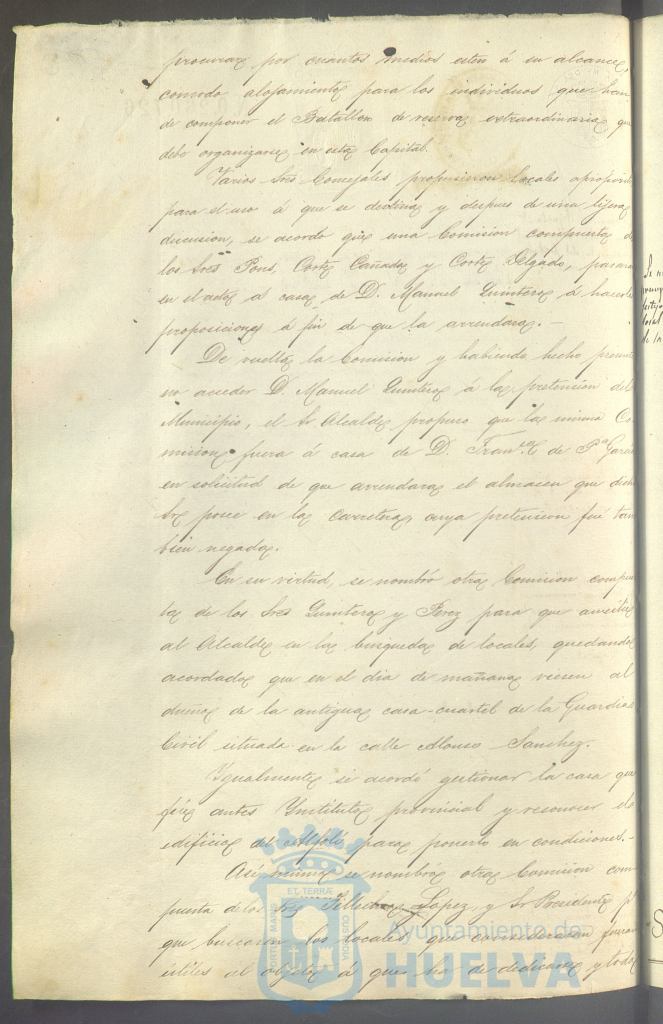 procurar por cuantos medios esten á su alcance,
comodo alojamiento para los individuos que han
de componer el Batallon de reserva extraordinaria que
debe organizarse en esta Capital.
Varios Sres Concejales propusieron locales aproposito
para el uso á que se destina y despues de una lijera
discusion, se acordo que una Comision compuesta de
los Sres Pons, Cortes Cañada y Cortes Delgado, pasara
en el acto á casa de D. Manuel Quintero á hacerle
proposiciones á fin de que la arrendara.-
De vuelta la Comision y habiendo hecho presente
no acceder D. Manuel Quintero á la pretension del
Municipio, el Sr Alcalde propuso que la misma Co
mision fuera á casa de D. Franco de Pa Garcia
en solicitud de que arrendara el almacen que dicho
Sr posee en la Carretera, cuya pretension fué tam
bien negada.
En su virtud, se nombró otra Comision compues
ta de los Sres Quintero y Perez para que auxilie
al Alcalde en la busqueda de locales, quedando
acordado que en el dia de mañana viesen al
dueño de la antigua casa-cuartel de la Guardia
Civil situada en la calle Alonso Sanchez.
Igualmente se acordó gestionar la casa que
fué antes Instituto provincial y reconocer el
edificio del Alfolí para ponerlo en condiciones.-
Asi mismo se nombró otra Comision com
puesta de los Sres Lopez y Sr Presidente pa
que buscaran los locales que consideraran fueran
utiles al objeto á que ha de dedicarse y todo
Ayuntamiento de
HUELVA
PORTUS MARIS
ET TERRÆ
CUSTODIA